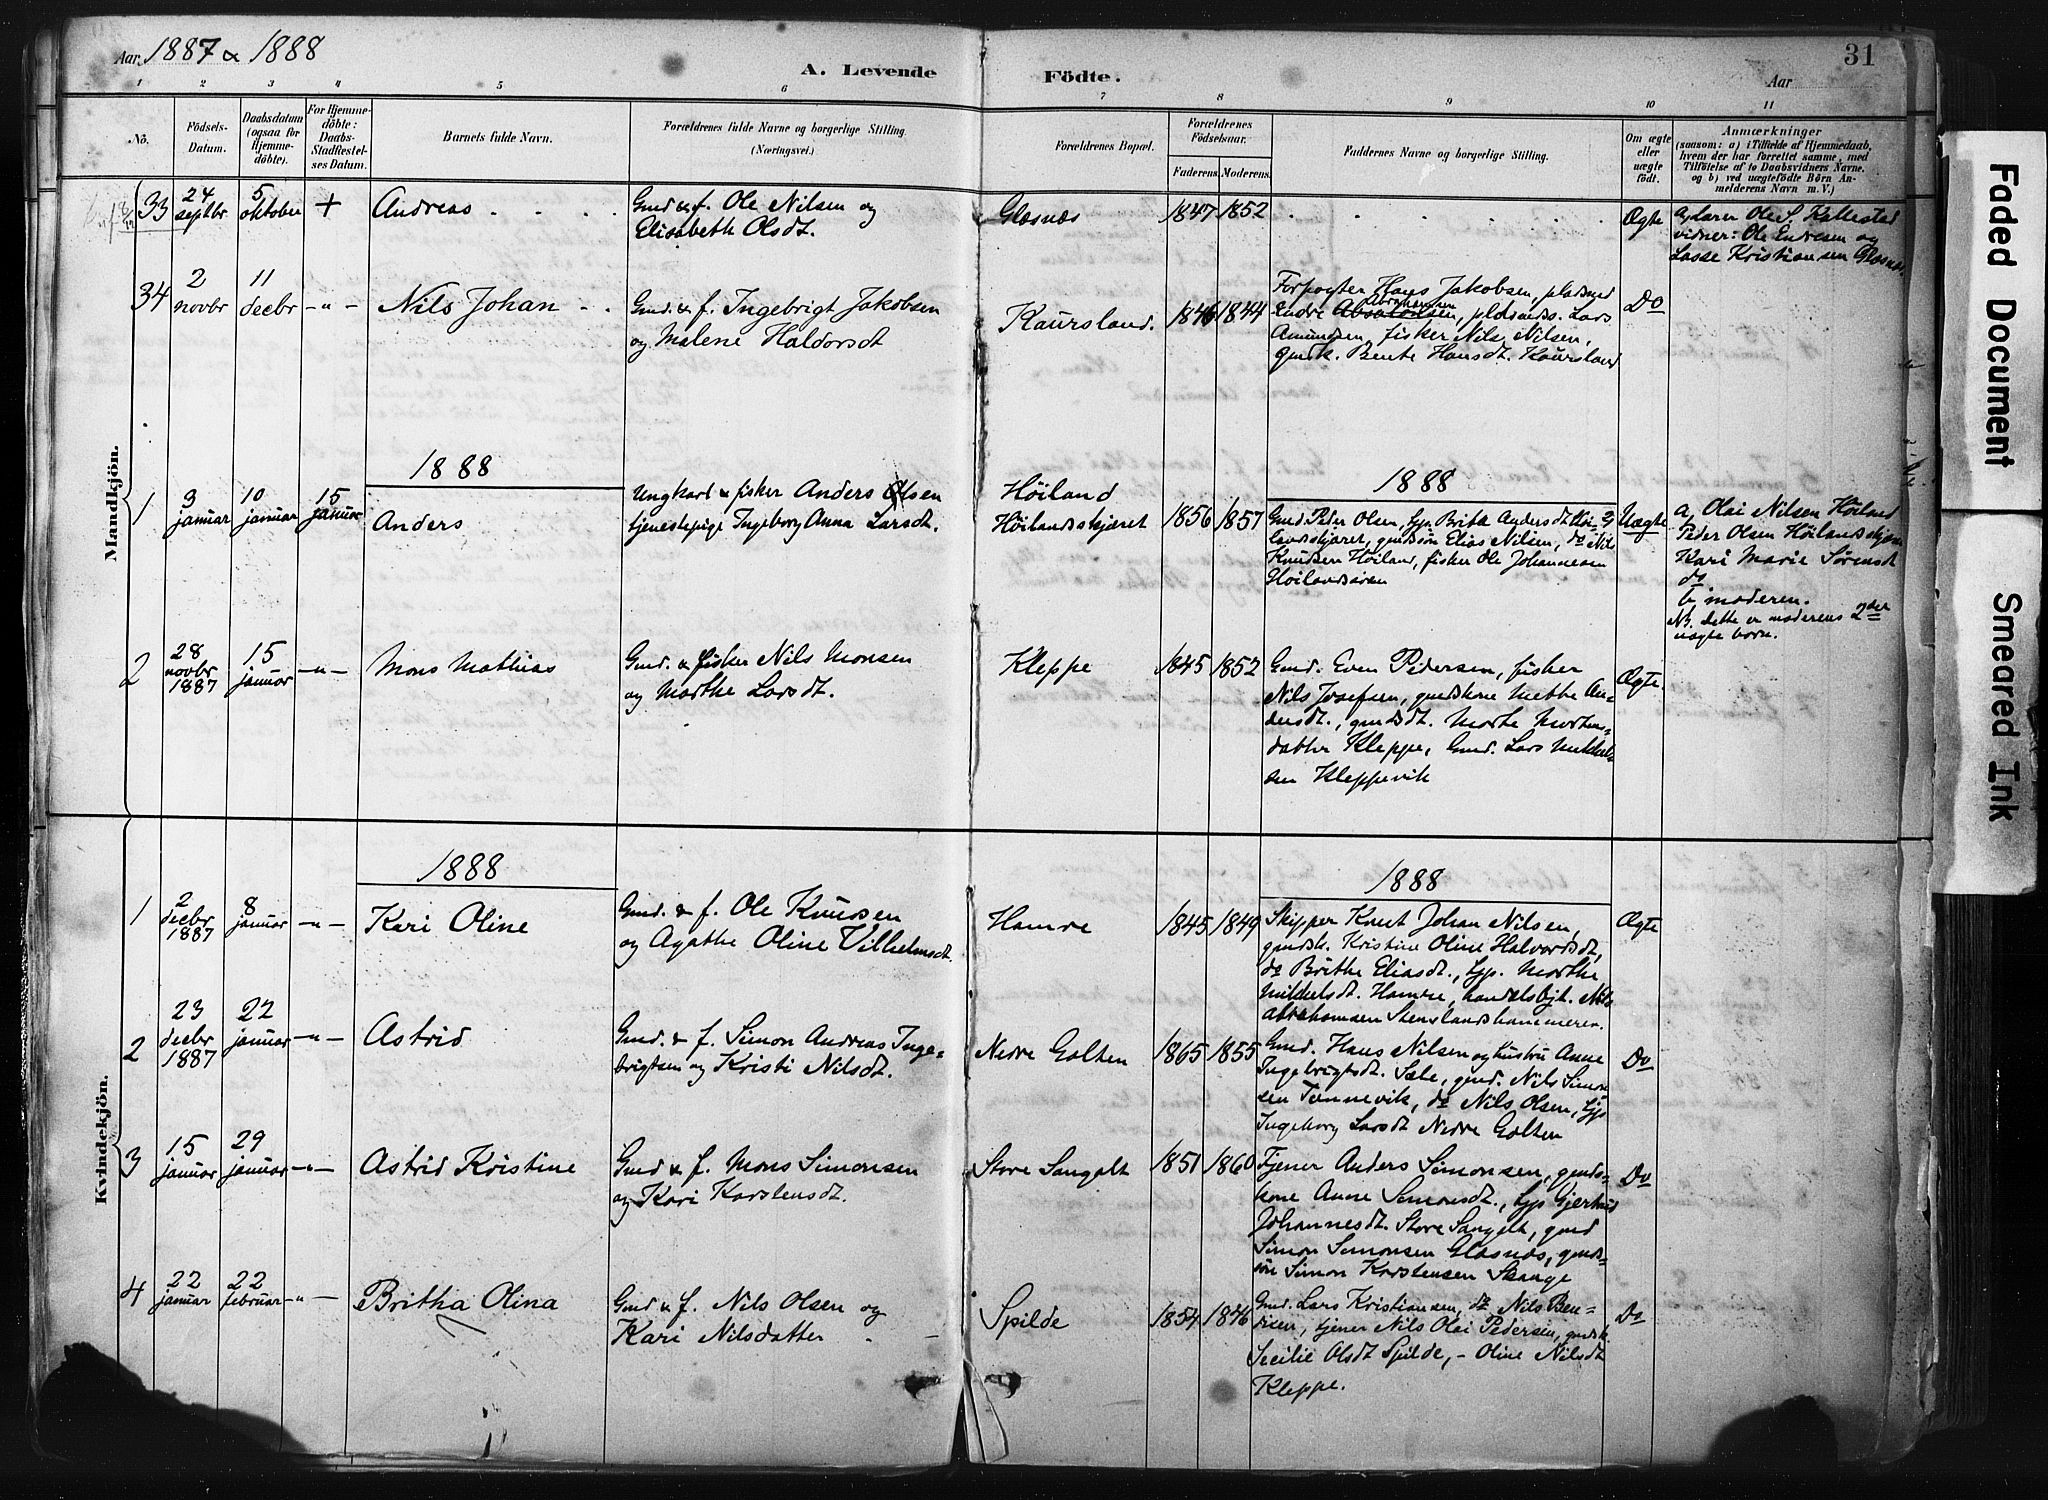 Aar 1887 & 1888
A. Levende Födte.
Aar
31
1 2 3 4 5 6 7 8 9 10 11
No.
Födsels-
Datum.
Daabsdatum
(ogsaa for
Hjemme-
döbte).
For Hjemme-
döbte:
Daabs-
Stadfæstel-
ses Datum.
Barnets fulde Navn.
Forældrenes fulde Navne og borgerlige Stilling.
(Næringsvei.)
Forældrenes Bopæl.
Forældrenes
Födselsaar.
Faderens. Moderens.
Faddernes Navne og borgerlige Stilling.
Om ægte
eller
uægte
födt.
Anmærkninger
(saasom: a) i Tilfælde af Hjemmedaab,
hvem der har forrettet samme, med
Tilföielse af to Daabsvidners Navne.
og b) ved uægtefödte Börn An-
melderens Navn m. V.)
Mandkjön.
33
24
septbr
5
oktober
+
Andreas
Gmd & f. Ole Nilsen og
Elisabeth Olsdt.
Glæsnæs
1847 1852
Ægte
a, lærer Ole S. Kallestad
vidner: Ole Endresen og
Lasse Kristiansen Glæsnæs
34
2
novbr
11
decbr
-"-
Nils Johan
Gmd. & f. Ingebrigt Jakobsen
og Malene Haldorsdt
Kaursland.
1846 1844
Forpagter Hans Jakobsen, pladsmd
Endre Absalonsen Abrahamsen, pladsmds. Lars
Amundsen, fisker Nils Nilsen,
gmdsk. Bente Hansdt. Kaursland
Do
1888
1888
1
3
januar
10
januar
15
januar
Anders
Ungkarl & fisker Anders Olsen
tjenestepige Ingeborg Anna Larsdt.
Höiland
Höilandsskjæret
1856 1857
Gmd. Peder Olsen, Ljp. Britha Andersdt Höi-
landsskjæret, gmdsön Elias Nilsen, do Nils
Knudsen Höiland, fisker Ole Johannesen
Höilandsören
Uægte
a, Olai Nilsen Höiland
Peder Olsen Höilandsskjær
Kari Marie Sörensdt
do
b, moderen.
NB. dette er moderens 2det
uægte barn.
2
28
novbr
1887
15
januar
-"-
Mons Mathias
Gmd. & fisker Nils Monsen
og Marthe Larsdt.
Kleppe
1845 1852
Gmd. Even Pedersen, fisker
Nils Josefsen, gmdskone Mette An-
dersdt., gmdsdt. Marte Mortens-
datter Kleppe, Gmd. Lars Mikkel-
sen Kleppevik
Ægte.
Kvindekjön.
1888
1888
1
2
decbr
1887
8
januar
-"-
Kari Oline
Gmd. & f. Ole Knudsen
og Agathe Oline Vilhelmsdt.
Hamre
1845 1849
Skipper Knut Johan Nilsen,
gmdsk. Kristine Oline Halvordsdt,
do Brithe Eliasdt., Ljp. Marthe
Mikkelsdt. Hamre, handelsbjt. Nils
Abrahamsen Stenslandshammeren.
Ægte
2
23
decbr
1887
22
januar
-"-
Astrid
Gmd. & f. Simon Andreas Inge-
brigtsen og Kristi Nilsdt.
Nedre Golten
1865 1855
Gmd. Hans Nilsen og hustru Anne
Ingebrigtsdt. Sæle, gmd. Nils Simon-
sen Tonnevik, do Nils Olsen, Ljp
Ingeborg Larsdt Nedre Golten
Do
3
15
januar
29
januar
-"-
Astrid Kristine
Gmd & f. Mons Simonsen
og Kari Karstensdt.
Store Sangolt
1851 1860
Tjener Anders Simonsen, gmds-
kone Anne Simonsdt., Ljp Gjertrud
Johannesdt. Store Sangolt, gmd
Simon Simonsen Glæsnæs, gmds-
sön Simon Karstensen Skauge
Do
4
22
januar
22
februar
-"-
Britha Olina
Gmd & f. Nils Olsen og
Kari Nilsdatter
Spilde
1854 1846
Gmd. Lars Kristiansen, do Nils Ben-
disen, tjener Nils Olai Pedersen, gmdsk.
Secilie Olsdt Spilde, - Oline Nilsdt
Kleppe.
Do
Faded Document
Smeared Ink